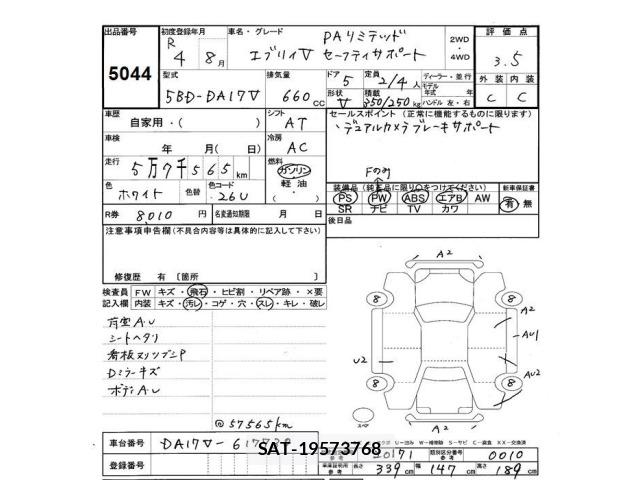 出品番号
5044
初度登録年月
R 4年 8月
車名・グレード
エブリイV PAリミテッド セーフティサポート
2WD・4WD
評価点
3.5
型式
5BD-DA17V
排気量
660cc
ドア 5
形状 V
定員 2/4人
積載 350/250kg
ディーラー・並行
モデル年式 年式
ハンドル 左・右
外装 内装
C C
車歴
自家用・( )
シフト
AT
セールスポイント (正常に機能するものに限ります)
デュアルカメラブレーキサポート
車検
年 月( 日)
冷房
AC
走行
5万7千565km
燃料
ガソリン・軽油・( )
色
ホワイト
色替
色コード
26U
Fのみ
装備品 (純正品に限り○をつけてください)
PS PW ABS エアB AW
SR ナビ TV カワ
新車保証書
有 無
R券 8010円
名変通知期限 月 日
後日品
注意事項申告欄(不具合内容等は具体的に記入して下さい)
修復歴 有 〔箇所 〕
検査員記入欄
FW キズ・飛石・ヒビ割・リペア跡・×要
内装 キズ・汚レ・コゲ・穴・スレ・キレ・破レ
A2
8 8
荷室A.U
シートヘタリ
A2
AU1
U2
Dミラーキズ
AU2
8 8
ボディA.U
スペア
A2
@57565km
車台番号
DA17V-
SAT-19573768
登録番号
20171
類別区分番号
0010
長さ 339cm 幅 147cm 高さ 189cm